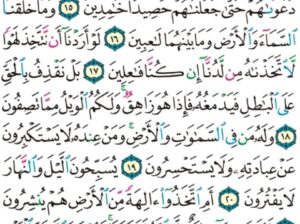 دَعْوَىٰهُمْ حَتَّىٰ جَعَلْنَٰهُمْ حَصِيدًا خَٰمِدِينَ ١٥ وَمَا خَلَقْنَا
ٱلسَّمَآءَ وَٱلْأَرْضَ وَمَا بَيْنَهُمَا لَٰعِبِينَ ١٦ لَوْ أَرَدْنَآ أَن نَّتَّخِذَ لَهْوًا
لَّٱتَّخَذْنَٰهُ مِن لَّدُنَّآ إِن كُنَّا فَٰعِلِينَ ١٧ بَلْ نَقْذِفُ بِٱلْحَقِّ
عَلَى ٱلْبَٰطِلِ فَيَدْمَغُهُۥ فَإِذَا هُوَ زَاهِقٌ ۚ وَلَكُمُ ٱلْوَيْلُ مِمَّا تَصِفُونَ
١٨ وَلَهُۥ مَن فِى ٱلسَّمَٰوَٰتِ وَٱلْأَرْضِ ۚ وَمَنْ عِندَهُۥ لَا يَسْتَكْبِرُونَ
عَنْ عِبَادَتِهِۦ وَلَا يَسْتَحْسِرُونَ ١٩ يُسَبِّحُونَ ٱلَّيْلَ وَٱلنَّهَارَ
لَا يَفْتُرُونَ ٢٠ أَمِ ٱتَّخَذُوٓا۟ ءَالِهَةً مِّنَ ٱلْأَرْضِ هُمْ يُنشِرُونَ